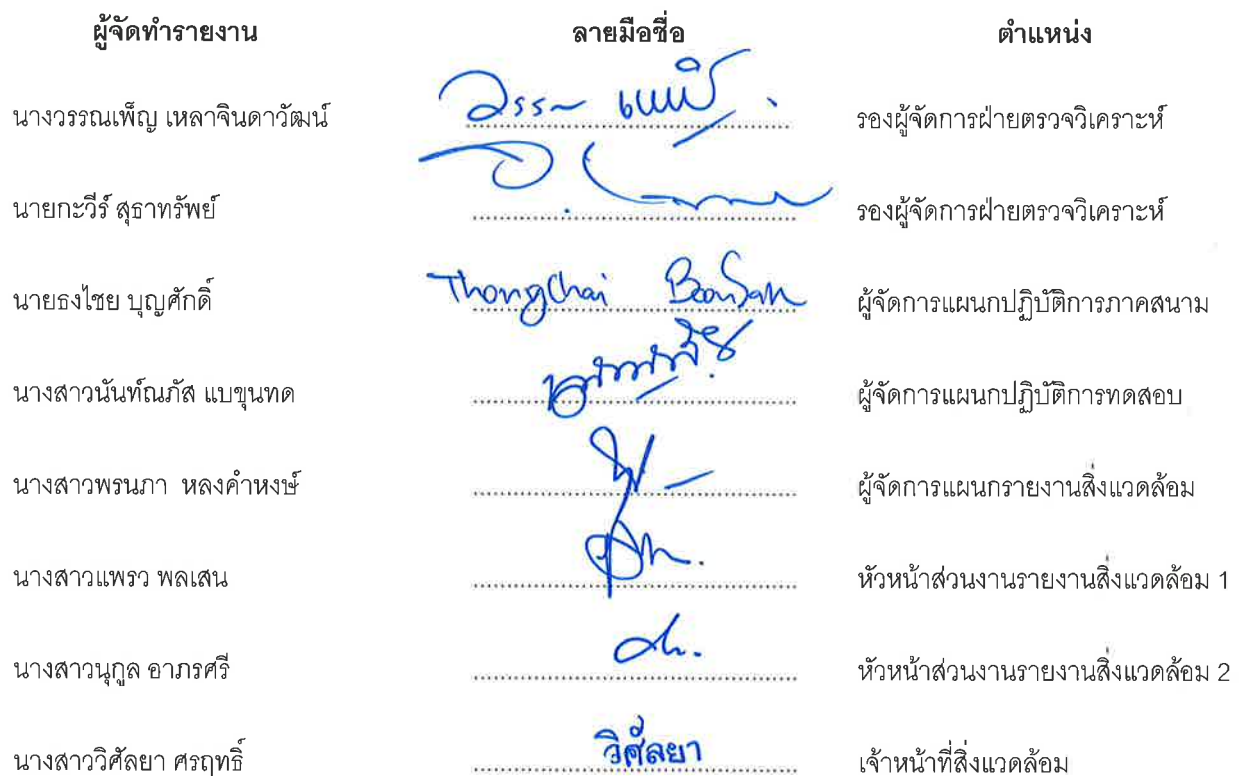 ผู้จัดทำรายงาน ลายมือชื่อ ตำแหน่ง
นางวรรณเพ็ญ เหลาจินดาวัฒน์ วรรณ เพ็ญ รองผู้จัดการฝ่ายตรวจวิเคราะห์
นายกะวีร์ สุธาทรัพย์ รองผู้จัดการฝ่ายตรวจวิเคราะห์
นายธงไชย บุญศักดิ์ Thongchai Boonsak ผู้จัดการแผนกปฏิบัติการภาคสนาม
นางสาวนันท์ณภัส แบขุนทด ผู้จัดการแผนกปฏิบัติการทดสอบ
นางสาวพรนภา หลงคำหงษ์ ผู้จัดการแผนกรายงานสิ่งแวดล้อม
นางสาวแพรว พลเสน หัวหน้าส่วนงานรายงานสิ่งแวดล้อม 1
นางสาวนุกูล อาภรศรี หัวหน้าส่วนงานรายงานสิ่งแวดล้อม 2
นางสาววิศัลยา ศรฤทธิ์ วิศัลยา เจ้าหน้าที่สิ่งแวดล้อม